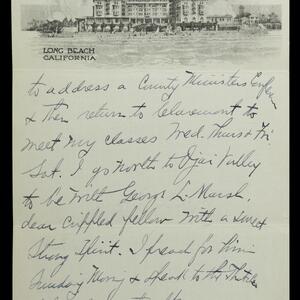 LONG BEACH
CALIFORNIA
to address a County Ministers Confer
& then return to Claremont to
meet my classes Wed, Thurs & Fri.
Sat. I go north to Ojai Valley
to be with George L. Marsh,
dear crippled fellow with a sweet
strong spirit. I preach for him
Sunday Morng & speak to the